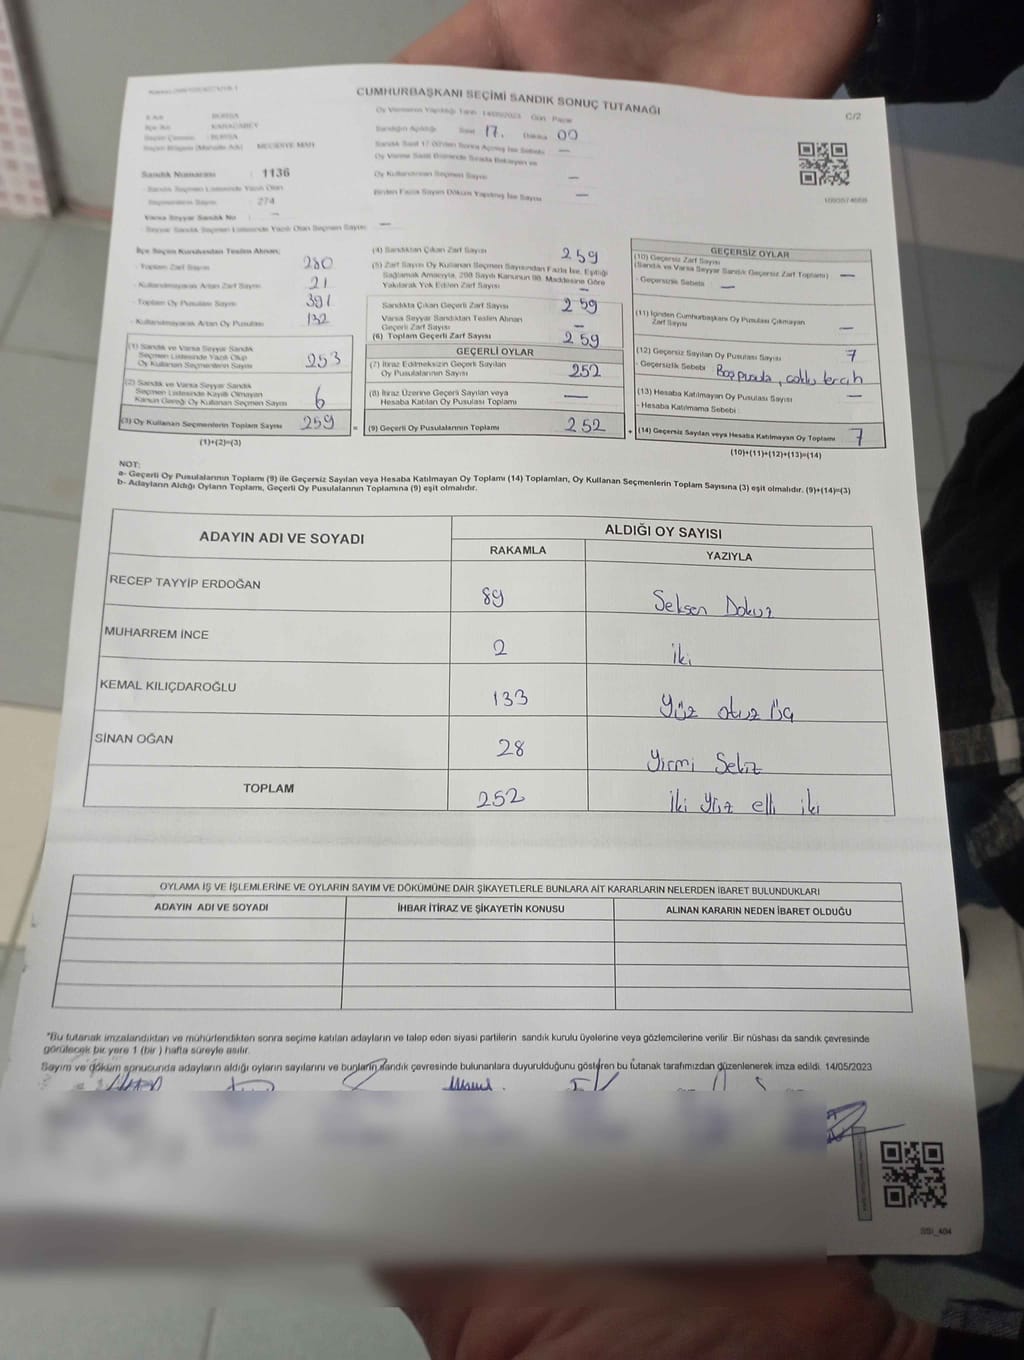 CUMHURBAŞKANI SEÇİMİ SANDIK SONUÇ TUTANAĞI
C/2
Oy Vermenin Yapıldığı Tarih 14/05/2023 Gün: Pazar
İli BURSA
İlçe KARACABEY
BURSA
MECİDİYE MAH
Sandığın Açıldığı Saat 17. Dakika 00
Sandık Saat 17:00'den Sonra Açılmış İse Sebebi —
Oy Verme Saati Bitiminde Sırada Bekleyen ve
Oy Kullandırılan Seçmen Sayısı —
Birden Fazla Sayım Döküm Yapılmış İse Sayısı —
Sandık Numarası : 1136
Sandık Seçmen Listesinde Yazılı Olan
Seçmenlerin Sayısı : 274
Varsa Seyyar Sandık No : —
Seyyar Sandık Seçmen Listesinde Yazılı Olan Seçmen Sayısı —
İlçe Seçim Kurulundan Teslim Alınan;
- Toplam Zarf Sayısı 280
- Kullanılmayarak Artan Zarf Sayısı 21
- Toplam Oy Pusulası Sayısı 391
- Kullanılmayarak Artan Oy Pusulası 132
(1) Sandık ve Varsa Seyyar Sandık
Seçmen Listesinde Yazılı Olup
Oy Kullanan Seçmenlerin Sayısı 253
(2) Sandık ve Varsa Seyyar Sandık
Seçmen Listesinde Kayıtlı Olmayan
Kanun Gereği Oy Kullanan Seçmen Sayısı 6
(3) Oy Kullanan Seçmenlerin Toplam Sayısı 259
(1)+(2)=(3)
(4) Sandıktan Çıkan Zarf Sayısı 259
(5) Zarf Sayısı Oy Kullanan Seçmen Sayısından Fazla İse, Eşitliği
Sağlamak Amacıyla, 298 Sayılı Kanunun 98. Maddesine Göre
Yakılarak Yok Edilen Zarf Sayısı —
Sandıkta Çıkan Geçerli Zarf Sayısı 259
Varsa Seyyar Sandıktan Teslim Alınan
Geçerli Zarf Sayısı —
(6) Toplam Geçerli Zarf Sayısı 259
GEÇERLİ OYLAR
(7) İtiraz Edilmeksizin Geçerli Sayılan
Oy Pusulalarının Sayısı 252
(8) İtiraz Üzerine Geçerli Sayılan veya
Hesaba Katılan Oy Pusulası Toplamı —
= (9) Geçerli Oy Pusulalarının Toplamı 252
GEÇERSİZ OYLAR
(10) Geçersiz Zarf Sayısı
(Sandık ve Varsa Seyyar Sandık Geçersiz Zarf Toplamı) —
- Geçersizlik Sebebi : —
(11) İçinden Cumhurbaşkanı Oy Pusulası Çıkmayan
Zarf Sayısı —
(12) Geçersiz Sayılan Oy Pusulası Sayısı 7
- Geçersizlik Sebebi : Boş pusula, çoklu tercih
(13) Hesaba Katılmayan Oy Pusulası Sayısı —
- Hesaba Katılmama Sebebi :
+ (14) Geçersiz Sayılan veya Hesaba Katılmayan Oy Toplamı 7
(10)+(11)+(12)+(13)=(14)
NOT:
a- Geçerli Oy Pusulalarının Toplamı (9) ile Geçersiz Sayılan veya Hesaba Katılmayan Oy Toplamı (14) Toplamları, Oy Kullanan Seçmenlerin Toplam Sayısına (3) eşit olmalıdır. (9)+(14)=(3)
b- Adayların Aldığı Oyların Toplamı, Geçerli Oy Pusulalarının Toplamına (9) eşit olmalıdır.
ADAYIN ADI VE SOYADI
ALDIĞI OY SAYISI
RAKAMLA YAZIYLA
RECEP TAYYİP ERDOĞAN 89 Seksen Dokuz
MUHARREM İNCE 2 iki
KEMAL KILIÇDAROĞLU 133 Yüz otuz Üç
SİNAN OĞAN 28 Yirmi Sekiz
TOPLAM 252 İki Yüz elli iki
OYLAMA İŞ VE İŞLEMLERİNE VE OYLARIN SAYIM VE DÖKÜMÜNE DAİR ŞİKAYETLERLE BUNLARA AİT KARARLARIN NELERDEN İBARET BULUNDUKLARI
ADAYIN ADI VE SOYADI İHBAR İTİRAZ VE ŞİKAYETİN KONUSU ALINAN KARARIN NEDEN İBARET OLDUĞU
"Bu tutanak imzalandıktan ve mühürlendikten sonra seçime katılan adayların ve talep eden siyasi partilerin sandık kurulu üyelerine veya gözlemcilerine verilir. Bir nüshası da sandık çevresinde
görülecek bir yere 1 (bir) hafta süreyle asılır.
Sayım ve döküm sonucunda adayların aldığı oyların sayılarını ve bunların sandık çevresinde bulunanlara duyurulduğunu gösteren bu tutanak tarafımızdan düzenlenerek imza edildi. 14/05/2023
SSI_404